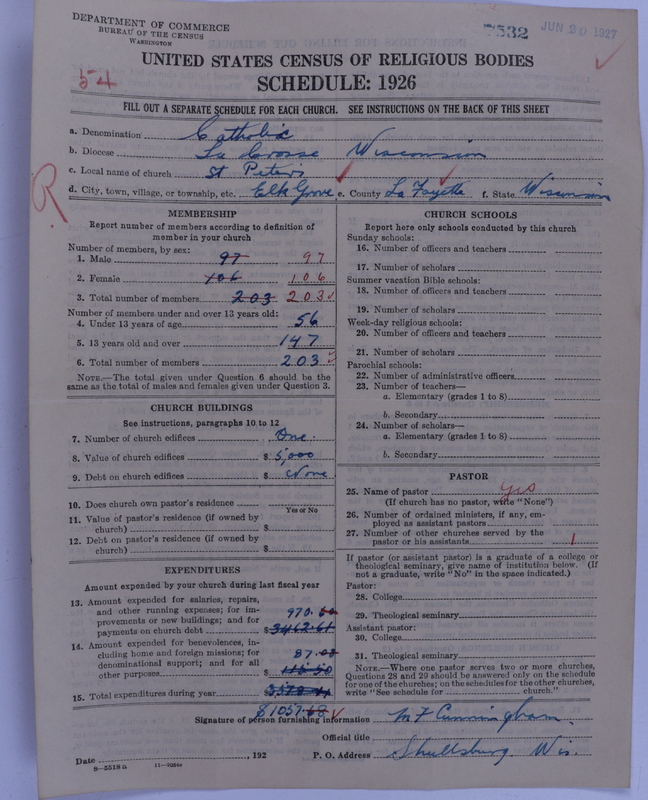 DEPARTMENT OF COMMERCE
BUREAU OF THE CENSUS
WASHINGTON
7532 JUN 20 1927
54
UNITED STATES CENSUS OF RELIGIOUS BODIES
SCHEDULE: 1926
FILL OUT A SEPARATE SCHEDULE FOR EACH CHURCH. SEE INSTRUCTIONS ON THE BACK OF THIS SHEET
a. Denomination Catholic
b. Diocese La Crosse Wisconsin
c. Local name of church St Peters
d. City, town, village, or township, etc. Elk Grove e. County La Fayette f. State Wisconsin
R
MEMBERSHIP
Report number of members according to definition of
member in your church
Number of members, by sex:
1. Male 97 97
2. Female 106 106
3. Total number of members 203 203
Number of members under and over 13 years old:
4. Under 13 years of age 56
5. 13 years old and over 147
6. Total number of members 203
NOTE.—The total given under Question 6 should be the
same as the total of males and females given under Question 3.
CHURCH BUILDINGS
See instructions, paragraphs 10 to 12
7. Number of church edifices One
8. Value of church edifices $ 5,000
9. Debt on church edifices $ None
10. Does church own pastor's residence
Yes or No
11. Value of pastor's residence (if owned by
church) $
12. Debt on pastor's residence (if owned by
church) $
EXPENDITURES
Amount expended by your church during last fiscal year
13. Amount expended for salaries, repairs,
and other running expenses; for im-
provements or new buildings; and for
payments on church debt $ 3462.61
970.
14. Amount expended for benevolences, in-
cluding home and foreign missions; for
denominational support; and for all
other purposes $
87.
15. Total expenditures during year $
1057.
CHURCH SCHOOLS
Report here only schools conducted by this church
Sunday schools:
16. Number of officers and teachers
17. Number of scholars
Summer vacation Bible schools:
18. Number of officers and teachers
19. Number of scholars
Week-day religious schools:
20. Number of officers and teachers
21. Number of scholars
Parochial schools:
22. Number of administrative officers
23. Number of teachers—
a. Elementary (grades 1 to 8)
b. Secondary
24. Number of scholars—
a. Elementary (grades 1 to 8)
b. Secondary
PASTOR
25. Name of pastor yes
(If church has no pastor, write "None")
26. Number of ordained ministers, if any, em-
ployed as assistant pastors
27. Number of other churches served by the
pastor or his assistants 1
If pastor (or assistant pastor) is a graduate of a college or
theological seminary, give name of institution below. (If
not a graduate, write "No" in the space indicated.)
Pastor:
28. College
29. Theological seminary
Assistant pastor:
30. College
31. Theological seminary
NOTE.—Where one pastor serves two or more churches,
Questions 28 and 29 should be answered only on the schedule
for one of the churches; on the schedules for the other churches,
write "See schedule for church."
Signature of person furnishing information M F Cunningham
Official title
Date , 192 P. O. Address Shullsburg Wis.
8—5518a 11—9364